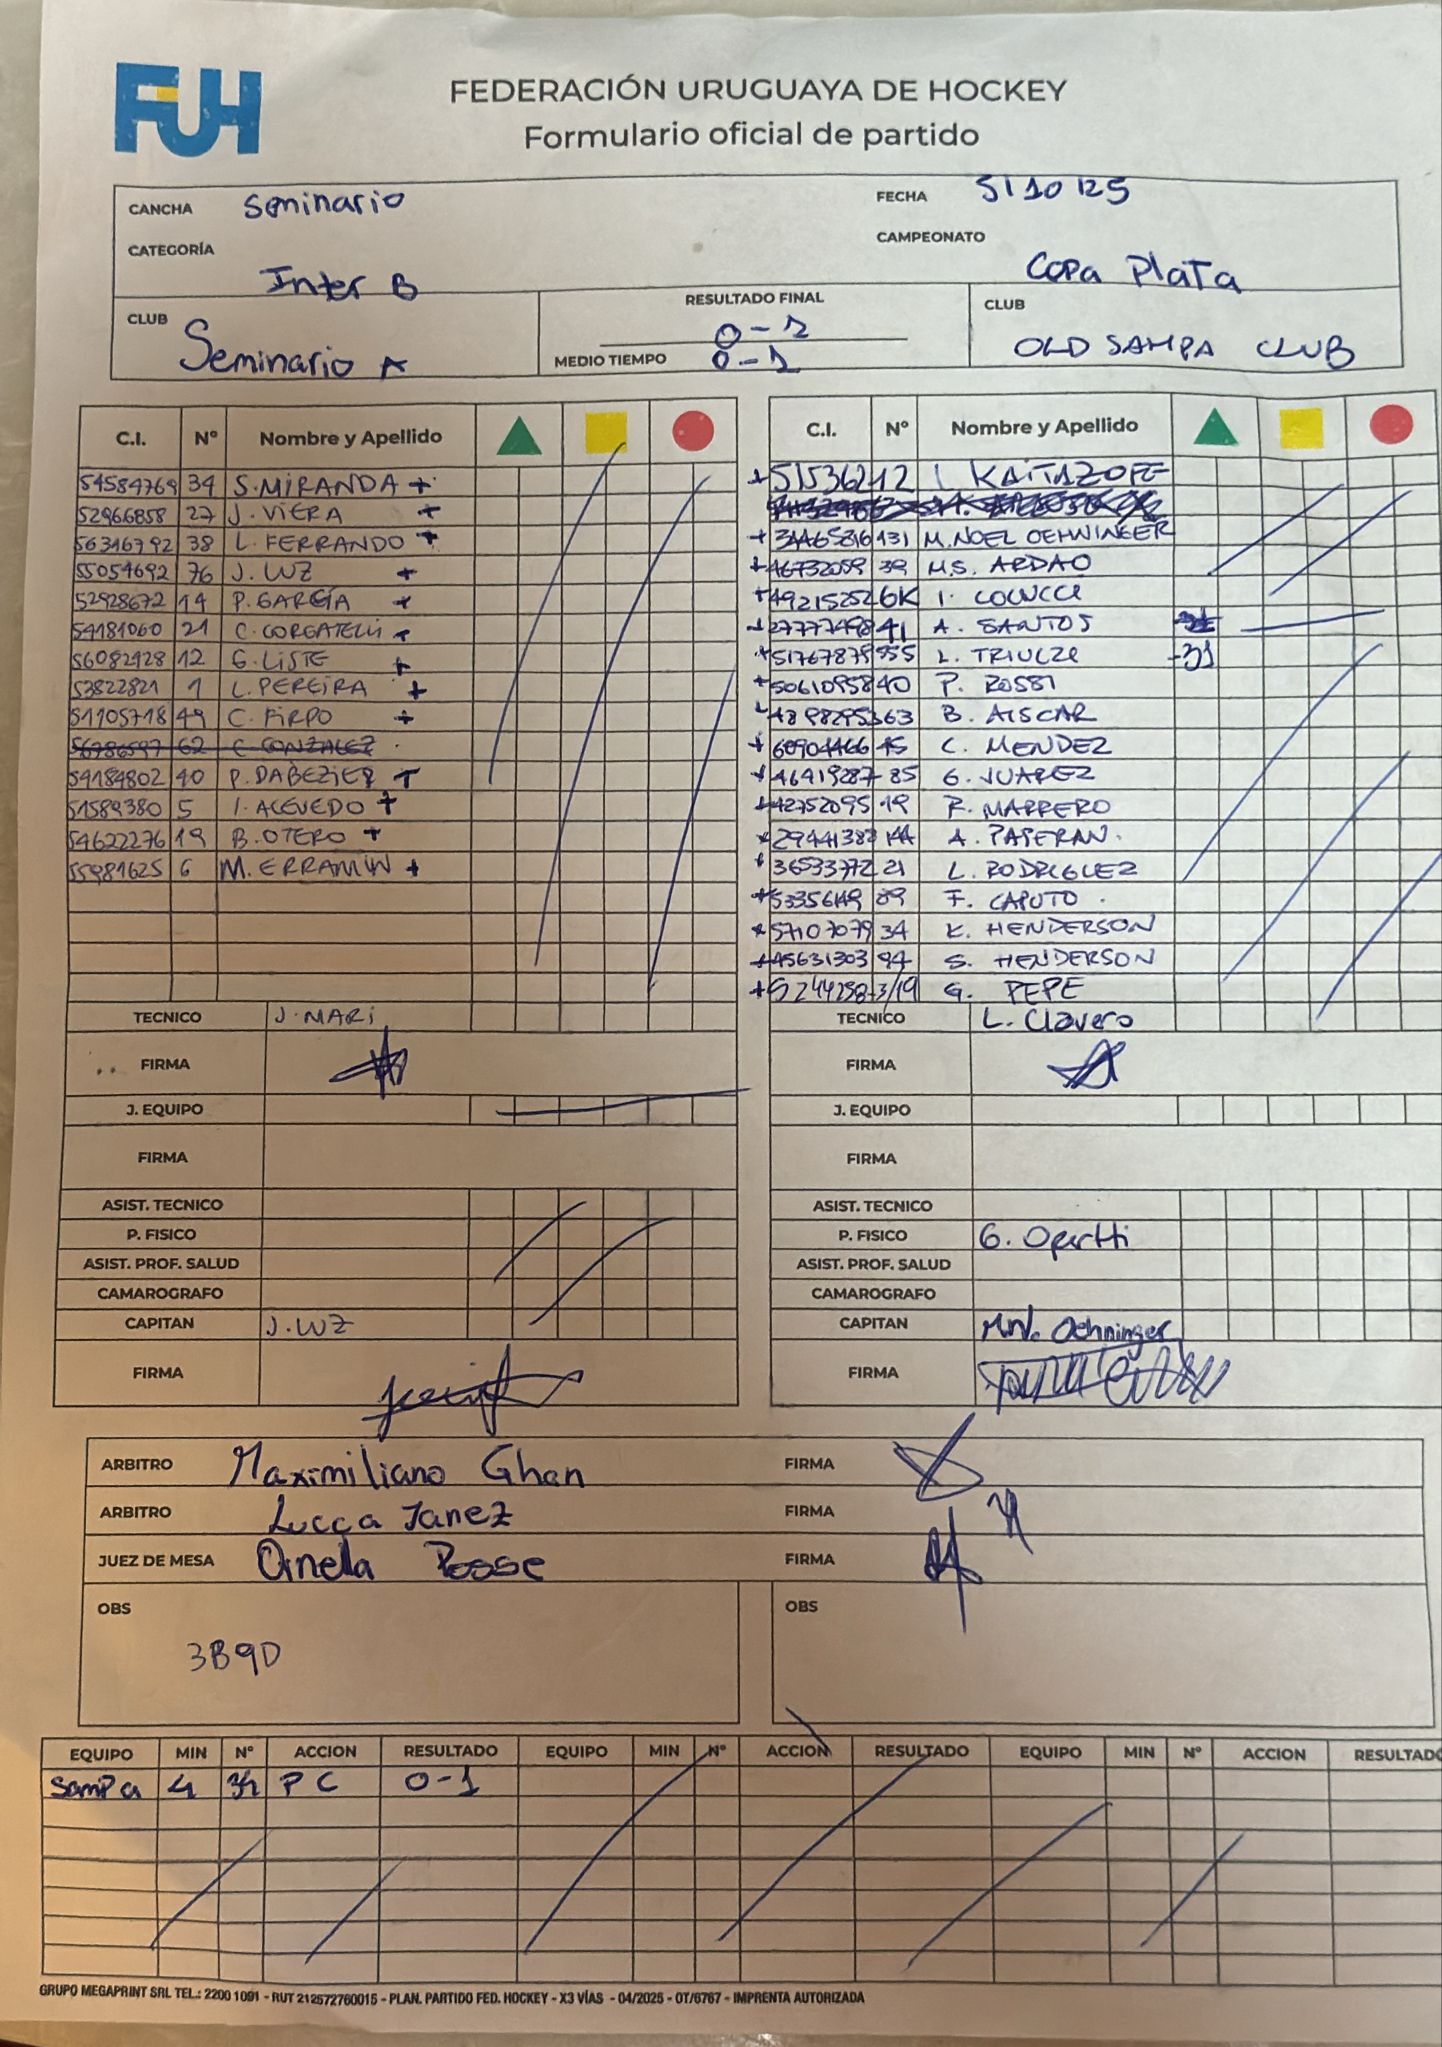 FUH
FEDERACIÓN URUGUAYA DE HOCKEY
Formulario oficial de partido
CANCHA Seminario FECHA 5/10/25
CATEGORÍA Inter B CAMPEONATO Copa Plata
CLUB Seminario A RESULTADO FINAL 0-1 CLUB OLD SAMPA CLUB
MEDIO TIEMPO 0-1
C.I. Nº Nombre y Apellido C.I. Nº Nombre y Apellido
54584769 34 S. MIRANDA + + 51536212 I. KAITAZOFF
52966858 27 J. VIERA +
56316792 38 L. FERRANDO + + 34465816 131 M. NOEL OEHNINGER
55054692 76 J. LUZ + + 46732059 39 M.S. ARDAO
52928672 14 P. GARGÍA + + 49215252 GK I. COLUCCI
54181060 21 C. + + 27777498 41 A. SANTOS
56082928 12 G. LISTE + + 51767879 555 L. TRIULZI -31
53822821 1 L. PEREIRA + + 50610958 40 P. ROSSI
51105718 49 C. FIRPO + 63 B. AISCAR
56786597 62 C. GONZALEZ + 60904466 45 C. MENDEZ
54184802 40 P. DABEZIES + + 46419287 85 G. JUAREZ
51589380 5 I. ACEVEDO + + 42752095 19 R. MARRERO
54622276 19 B. OTERO + + 29441382 A. PAPERAN.
55981625 6 M. ERRAMUN + + 36533772 21 L. RODRIGUEZ
+ 53356149 89 F. CAPUTO
+ 57107079 34 K. HENDERSON
+ 45631303 94 S. HENDERSON
+ G. PEPE
TECNICO J. MARI TECNICO L. Clavero
FIRMA FIRMA
J. EQUIPO J. EQUIPO
FIRMA FIRMA
ASIST. TECNICO ASIST. TECNICO
P. FISICO P. FISICO G. Opertti
ASIST. PROF. SALUD ASIST. PROF. SALUD
CAMAROGRAFO CAMAROGRAFO
CAPITAN J. LUZ CAPITAN M.N. Oehninger
FIRMA FIRMA
ARBITRO Maximiliano Ghan FIRMA
ARBITRO Lucca Janez FIRMA
JUEZ DE MESA Ornella Posse FIRMA
OBS OBS
3B9D
EQUIPO MIN Nº ACCION RESULTADO EQUIPO MIN Nº ACCION RESULTADO EQUIPO MIN Nº ACCION RESULTADO
SamPa 4 34 PC 0-1
GRUPO MEGAPRINT SRL TEL.: 2200 1091 - RUT 212572760015 - PLAN. PARTIDO FED. HOCKEY - X3 VÍAS - 04/2025 - OT/6767 - IMPRENTA AUTORIZADA